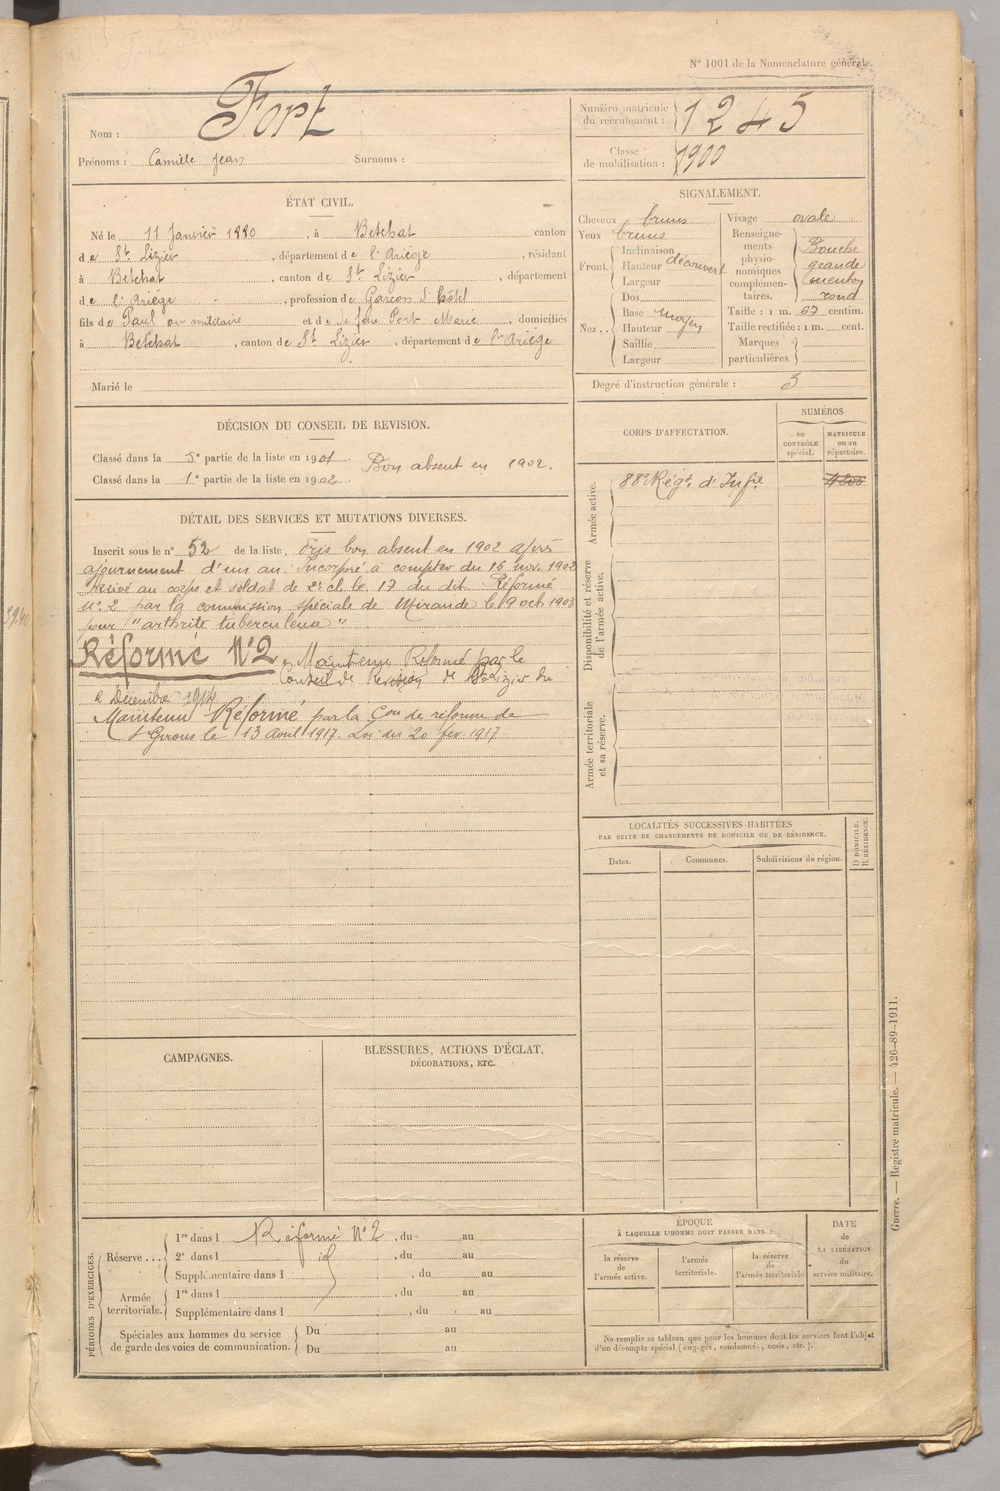 N° 1001 de la Nomenclature générale.
Nom : Fort
Prénoms : Camille Jean Surnoms :
Numéro matricule du recrutement : 1245
Classe de mobilisation : 1900
ÉTAT CIVIL.
Né le 11 Janvier 1880, à Betchat canton
de St Lizier, département de l'Ariège, résidant
à Betchat, canton de St Lizier, département
de l'Ariège, profession de Garçon d'hôtel
fils de Paul et de Fort Marie, domiciliés
à Betchat, canton de St Lizier, département de l'Ariège
Marié le
SIGNALEMENT.
Cheveux bruns
Yeux bruns
Front. Inclinaison
Hauteur découvert
Largeur
Nez.. Dos
Base moyen
Hauteur
Saillie
Largeur
Visage ovale
Renseignements physionomiques complémentaires. Bouche
grande
menton
rond
Taille : 1 m. 67 centim.
Taille rectifiée : 1 m. cent.
Marques particulières.
Degré d'instruction générale : 3
DÉCISION DU CONSEIL DE REVISION.
Classé dans la 5e partie de la liste en 1901.
Classé dans la 1e partie de la liste en 1902.
Bon absent en 1902.
CORPS D'AFFECTATION.
NUMÉROS
au CONTRÔLE spécial.
MATRICULE ou au répertoire.
Armée active.
88e Régt. d'Infie
Disponibilité et réserve de l'armée active.
Armée territoriale et sa réserve.
DÉTAIL DES SERVICES ET MUTATIONS DIVERSES.
Inscrit sous le n° 52 de la liste, Pris bon absent en 1902 après
ajournement d'un an. Incorporé à compter du 15 nov. 1902
Arrivé au corps et soldat de 2e cl. le 17 du dit Réformé
n° 2 par la commission spéciale de Mirande le 9 oct. 1903
pour "arthrite tuberculeuse"
Réformé N°2. Maintenu Réformé par le
Conseil de revision de St Lizier du
2 Décembre 1914
Maintenu Réformé par la Con de réforme de
St Girons le 13 Avril 1917. Loi du 20 fév. 1917.
LOCALITÉS SUCCESSIVES HABITÉES
PAR SUITE DE CHANGEMENTS DE DOMICILE OU DE RÉSIDENCE.
Dates.
Communes.
Subdivisions de région.
D DOMICILE. R RÉSIDENCE.
CAMPAGNES.
BLESSURES, ACTIONS D'ÉCLAT,
DÉCORATIONS, ETC.
PÉRIODES D'EXERCICES.
Réserve... 1re dans l Réformé N°2, du au
2e dans l id, du au
Supplémentaire dans l , du au
Armée territoriale. 1re dans l , du au
Supplémentaire dans l , du au
Spéciales aux hommes du service de garde des voies de communication. Du au
Du au
ÉPOQUE
À LAQUELLE L'HOMME DOIT PASSER DANS :
la réserve de l'armée active.
l'armée territoriale.
la réserve de l'armée territoriale
DATE
de
LA LIBÉRATION
du
service militaire.
Ne remplir ce tableau que pour les hommes dont les services font l'objet
d'un décompte spécial (engagés, condamnés, omis, etc.).
Guerre. — Registre matricule. — 426-89-1911.